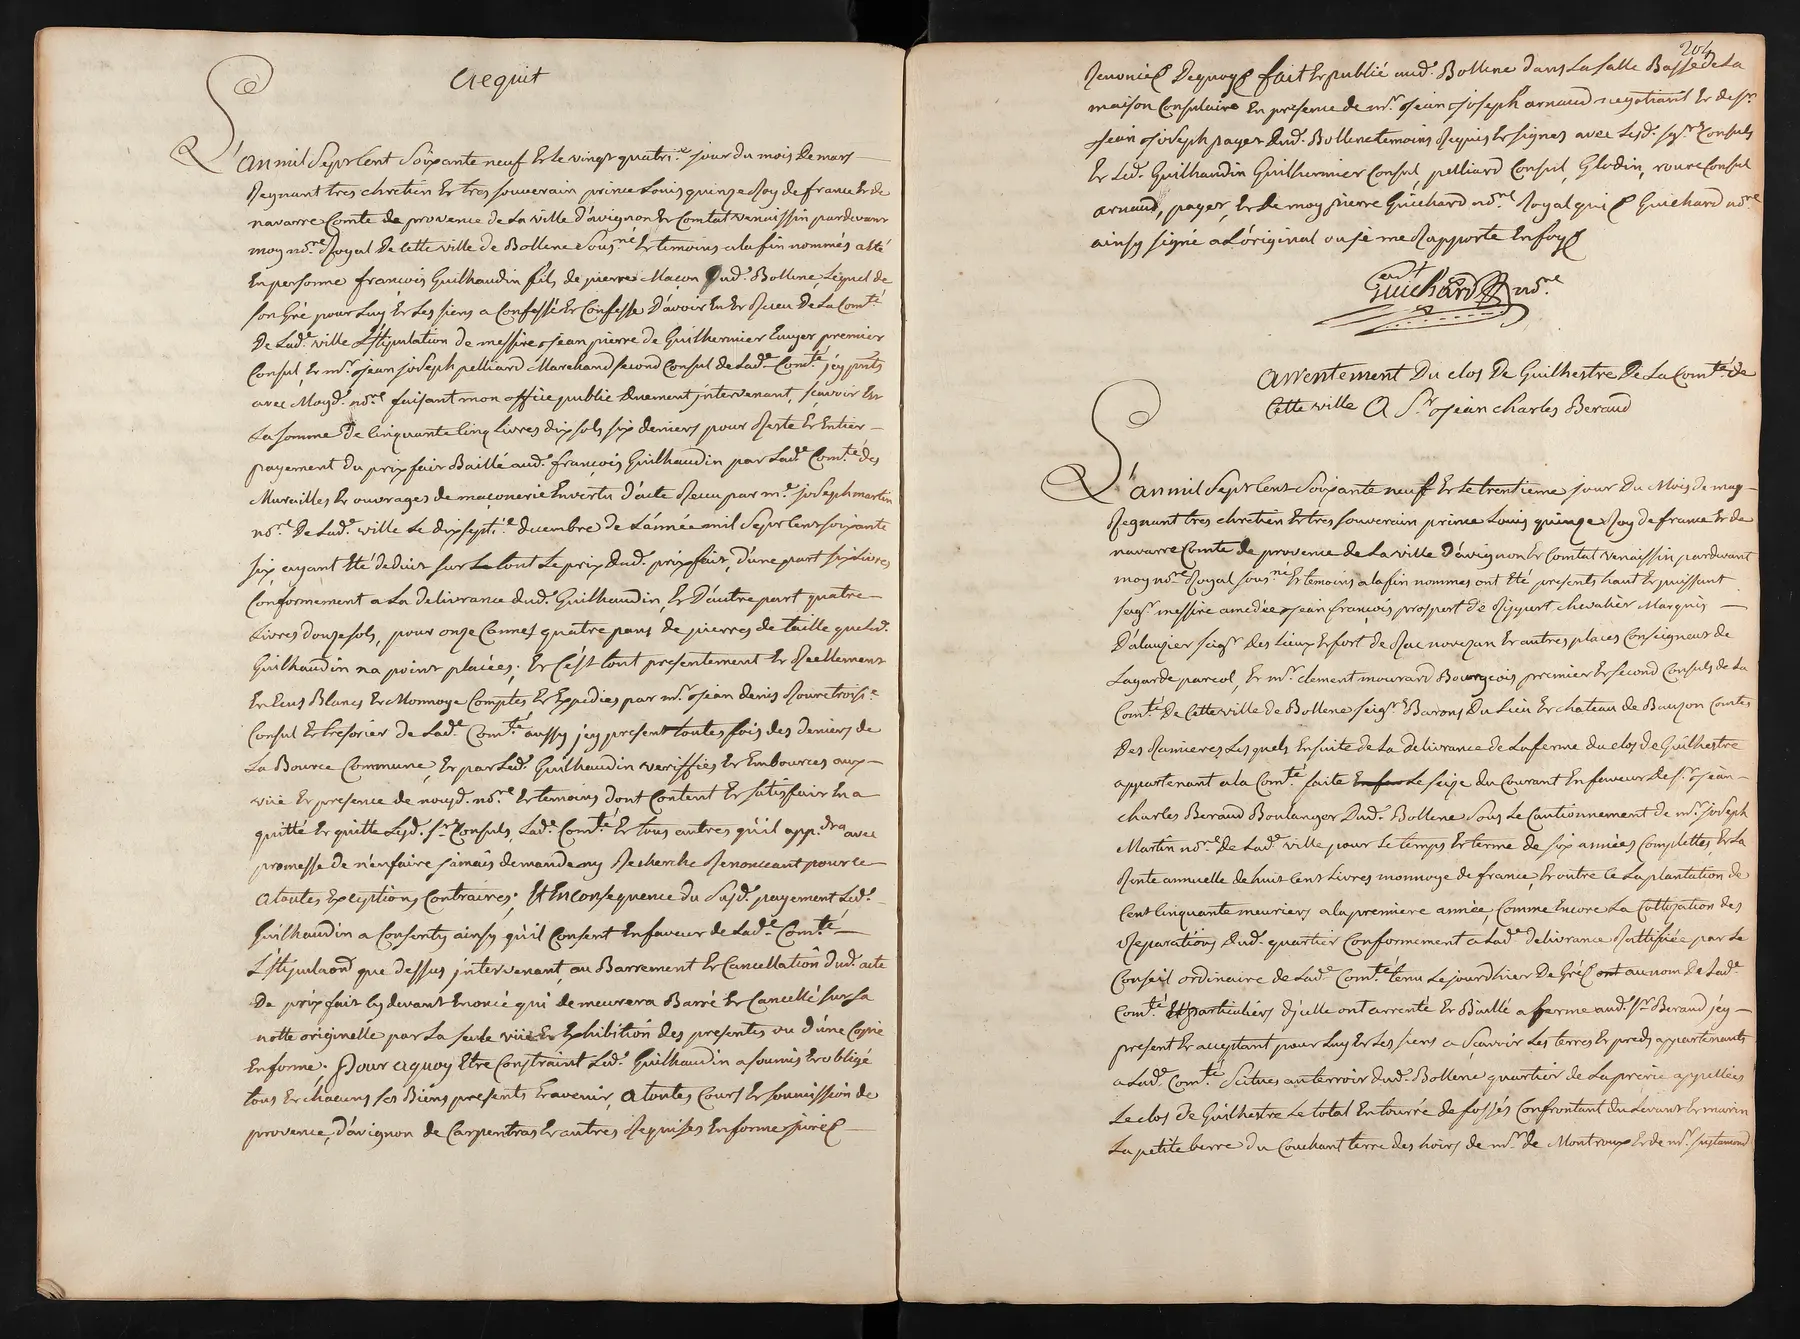 Acquit
L'an mil Sept Cent Soixante neuf Et le vingt quatri.e jour du mois De mars
Regnant tres chretien Et tres souverain prince Louis quinze Roy de france Et de
navarre Comte de provence de La ville d'avignon Et Comtat venaissin pardevant
moy no.re Royal De Cette ville de Bollene Sous.né Et temoins a la fin nommés a Eté
En personne francois Guilhaudin fils de pierre Maçon Dud. Bollene, Lequel de
son Gré pour Luy Et Les siens a Confessé Et Confesse D'avoir Eu Et Receu de La Com.té
De Lad.e ville L'Stipulation de messire Jean pierre de Guilhermier Ecuyer premier
Consul, Et m.r Jean joseph pelliard Marchand second Consul de Lad.e Com.té jcy pnts
avec Moyd. no.re faisant mon office public Duement jntervenant, scavoir Est
La somme De Cinquante Cinq Livres dix sols six deniers pour Reste Et Entier
payement du prix fait Baillé aud. francois Guilhaudin par Lad.e Com.té des
Murailles Et ouvrages de maçonerie En vertu d'acte Receu par m.e joseph martin
no.re De Lad.e ville Le dix sept.e decembre de L'année mil Sept Cent soixante
six, ayant Eté deduit sur Le tout Le prix Dud. prix fait, d'une part six Livres
Conformement a La delivrance dud. Guilhaudin, Et D'autre part quatre
Livres douze sols, pour onze Cannes quatre pans de pierres de taille que Led.
Guilhaudin n'a point placées; Et C'est tout presentement Et Réellement
En Ecus Blancs Et Monnoye Comptés Et Expediés par m.r Jean denis Roure trois.e
Consul Et tresorier de Lad.e Com.té aussy jcy present toutes fois des deniers de
La Bource Commune, Et par Led. Guilhaudin veriffiés Et Embourcés aux
vüe Et presence de nousd. no.re Et temoins dont Content Et satisfait En a
quitté Et quitte Lesd. s.rs Consuls, Lad.e Com.té Et tous autres qu'il app.dra avec
promesse de n'en faire jamais demande ny Recherche Renonceant pour ce
a toutes Exceptions Contraires; Et En Consequence du Susd. payement Led.
Guilhaudin a Consenty ainsy qu'il Consent En faveur de Lad.e Com.té
L'Stipulaõn que dessus jntervenant, au Barrement Et Cancellatiõn dud. acte
De prix fait Cy devant Enoncé qui demeurera Barré Et Cancellé sur Sa
notte originelle par La seule vüe Et Exhibitiõn des presentes ou d'une Copie
En forme. Pour aquoy Etre Constraint Led. Guilhaudin a soumis Et obligé
tous Et chacuns ses Biens presents Et avenir, a toutes Cours Et soumission de
provence, d'avignon de Carpentras Et autres Requises En forme juré
204
Renoncé De quoy fait Et publié aud. Bollene dans La salle Basse de La
maison Consulaire En presence de m.r Jean joseph arnaud negotiant Et de s.r
Jean Joseph payer Dud. Bollene temoins Requis Et signés avec Lesd. s.rs Consuls
Et Led. Guilhaudin Guilhermier Consul, pelliard Consul, Glodin, roure Consul
arnaud, payer, Et De moy pierre Guichard no.re Royal qui Guichard no.re
ainsy signé a L'original ou je me Rapporte En foy
Guichard no.re
Arrentement Du clos De Guilhestre De La Com.té de
Cette ville A S.r Jean Charles Beraud
L'an mil Sept Cent Soixante neuf Et Le trentieme jour Du Mois de may
Regnant tres chretien Et tres souverain prince Louis quinze Roy de france Et de
navarre Comte de provence de La ville D'avignon Et Comtat venaissin pardevant
moy no.re Royal sous.né Et temoins a la fin nommés ont Eté presents haut Et puissant
seig.r messire amedée Jean françois prospert de Rippert chevalier Marquis
D'alauzier seig.r des Lieux Et fort de Roc novezan Et autres places Conseigneur de
Lagarde pareol, Et m.r clement mourard Bourgeois premier Et second Consuls de La
Com.té De Cette ville de Bollene seig.rs Barons Du Lieu Et chateau de Bauzon Comtes
Des Ramieres Lesquels Ensuite de La delivrance de La ferme du clos de Guilhestre
appartenant a la Com.té faite Le seize du Courant En faveur de s.r Jean
charles Beraud Boulanger Dud. Bollene Sous Le Cautionnement de m.e joseph
Martin no.re de Lad.e ville pour Le temps Et terme de six années Complettes Et La
Rente annuelle de huit Cent Livres monnoye de france, Et outre ce La plantation de
Cent Cinquante meuriers a la premiere année, Comme Encore La Cottisation des
Reparations Dud. quartier Conformement a Lad.e delivrance Rattifiée par Le
Conseil ordinaire de Lad.e Com.té tenu Le jour d'hier De Gré ont au nom De Lad.e
Com.té Et particuliers d'jcelle ont arrenté Et Baillé a ferme aud. s.r Beraud jcy
present Et acceptant pour Luy Et Les siens a Scavoir Les terres Et preds appartenants
a Lad.e Com.té Scitués au terroir Dud. Bollene quartier de La prerie appellées
Le clos de Guilhestre Le total Entourée de fossés Confrontant du Levant Et marin
La petite berre du Couchant terre des hoirs de m.r de Montroux Et de m.r justamond